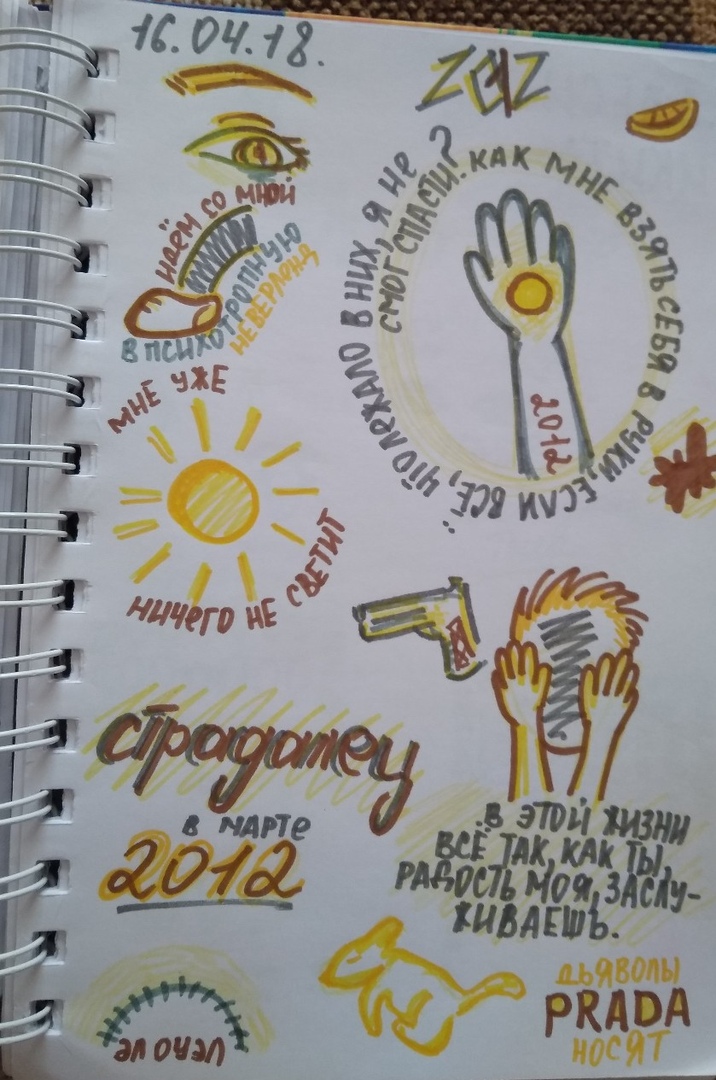 16.04.18.
zaz
идём со мной
в психотропную
неверлэнд
мне уже
ничего не светит
как мне взять себя в руки, если всё, что лежало в них, я не смог спасти?
2012
страдалец
в марте
2012
в этой жизни
всё так, как ты,
радость моя, заслу-
живаешь.
дьяволы
PRADA
носят